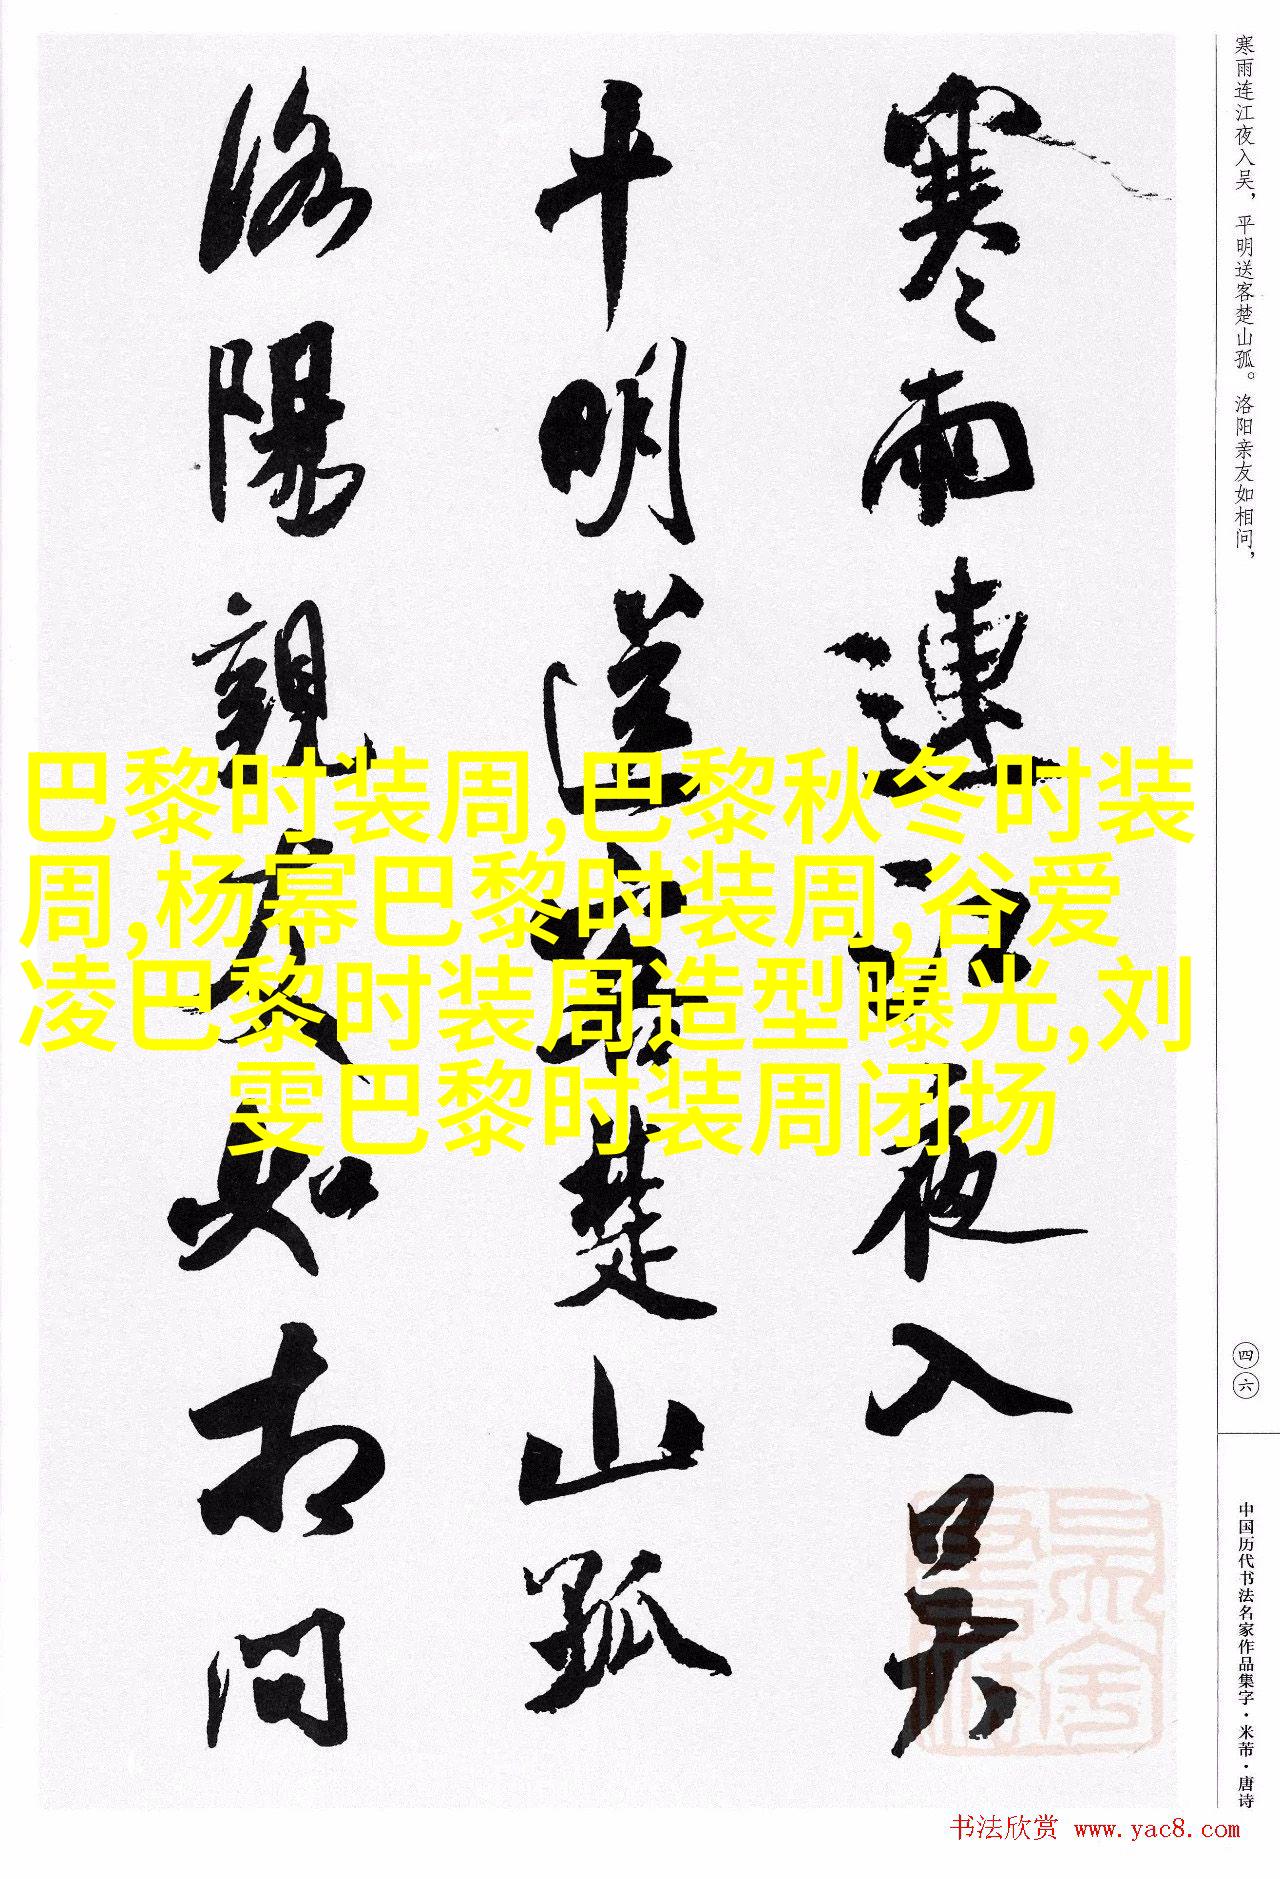 寒雨连江夜入吴，平明送客楚山孤。洛阳亲友如相问，
四六
中国历代书法名家作品集字·米芾·唐诗
寒雨連江夜入吴
平明送客楚山孤
洛陽親友如相問
巴黎时装周,巴黎秋冬时装
周,杨幂巴黎时装周,谷爱
凌巴黎时装周造型曝光,刘
雯巴黎时装周闭场
书法欣赏 www.yac8.com